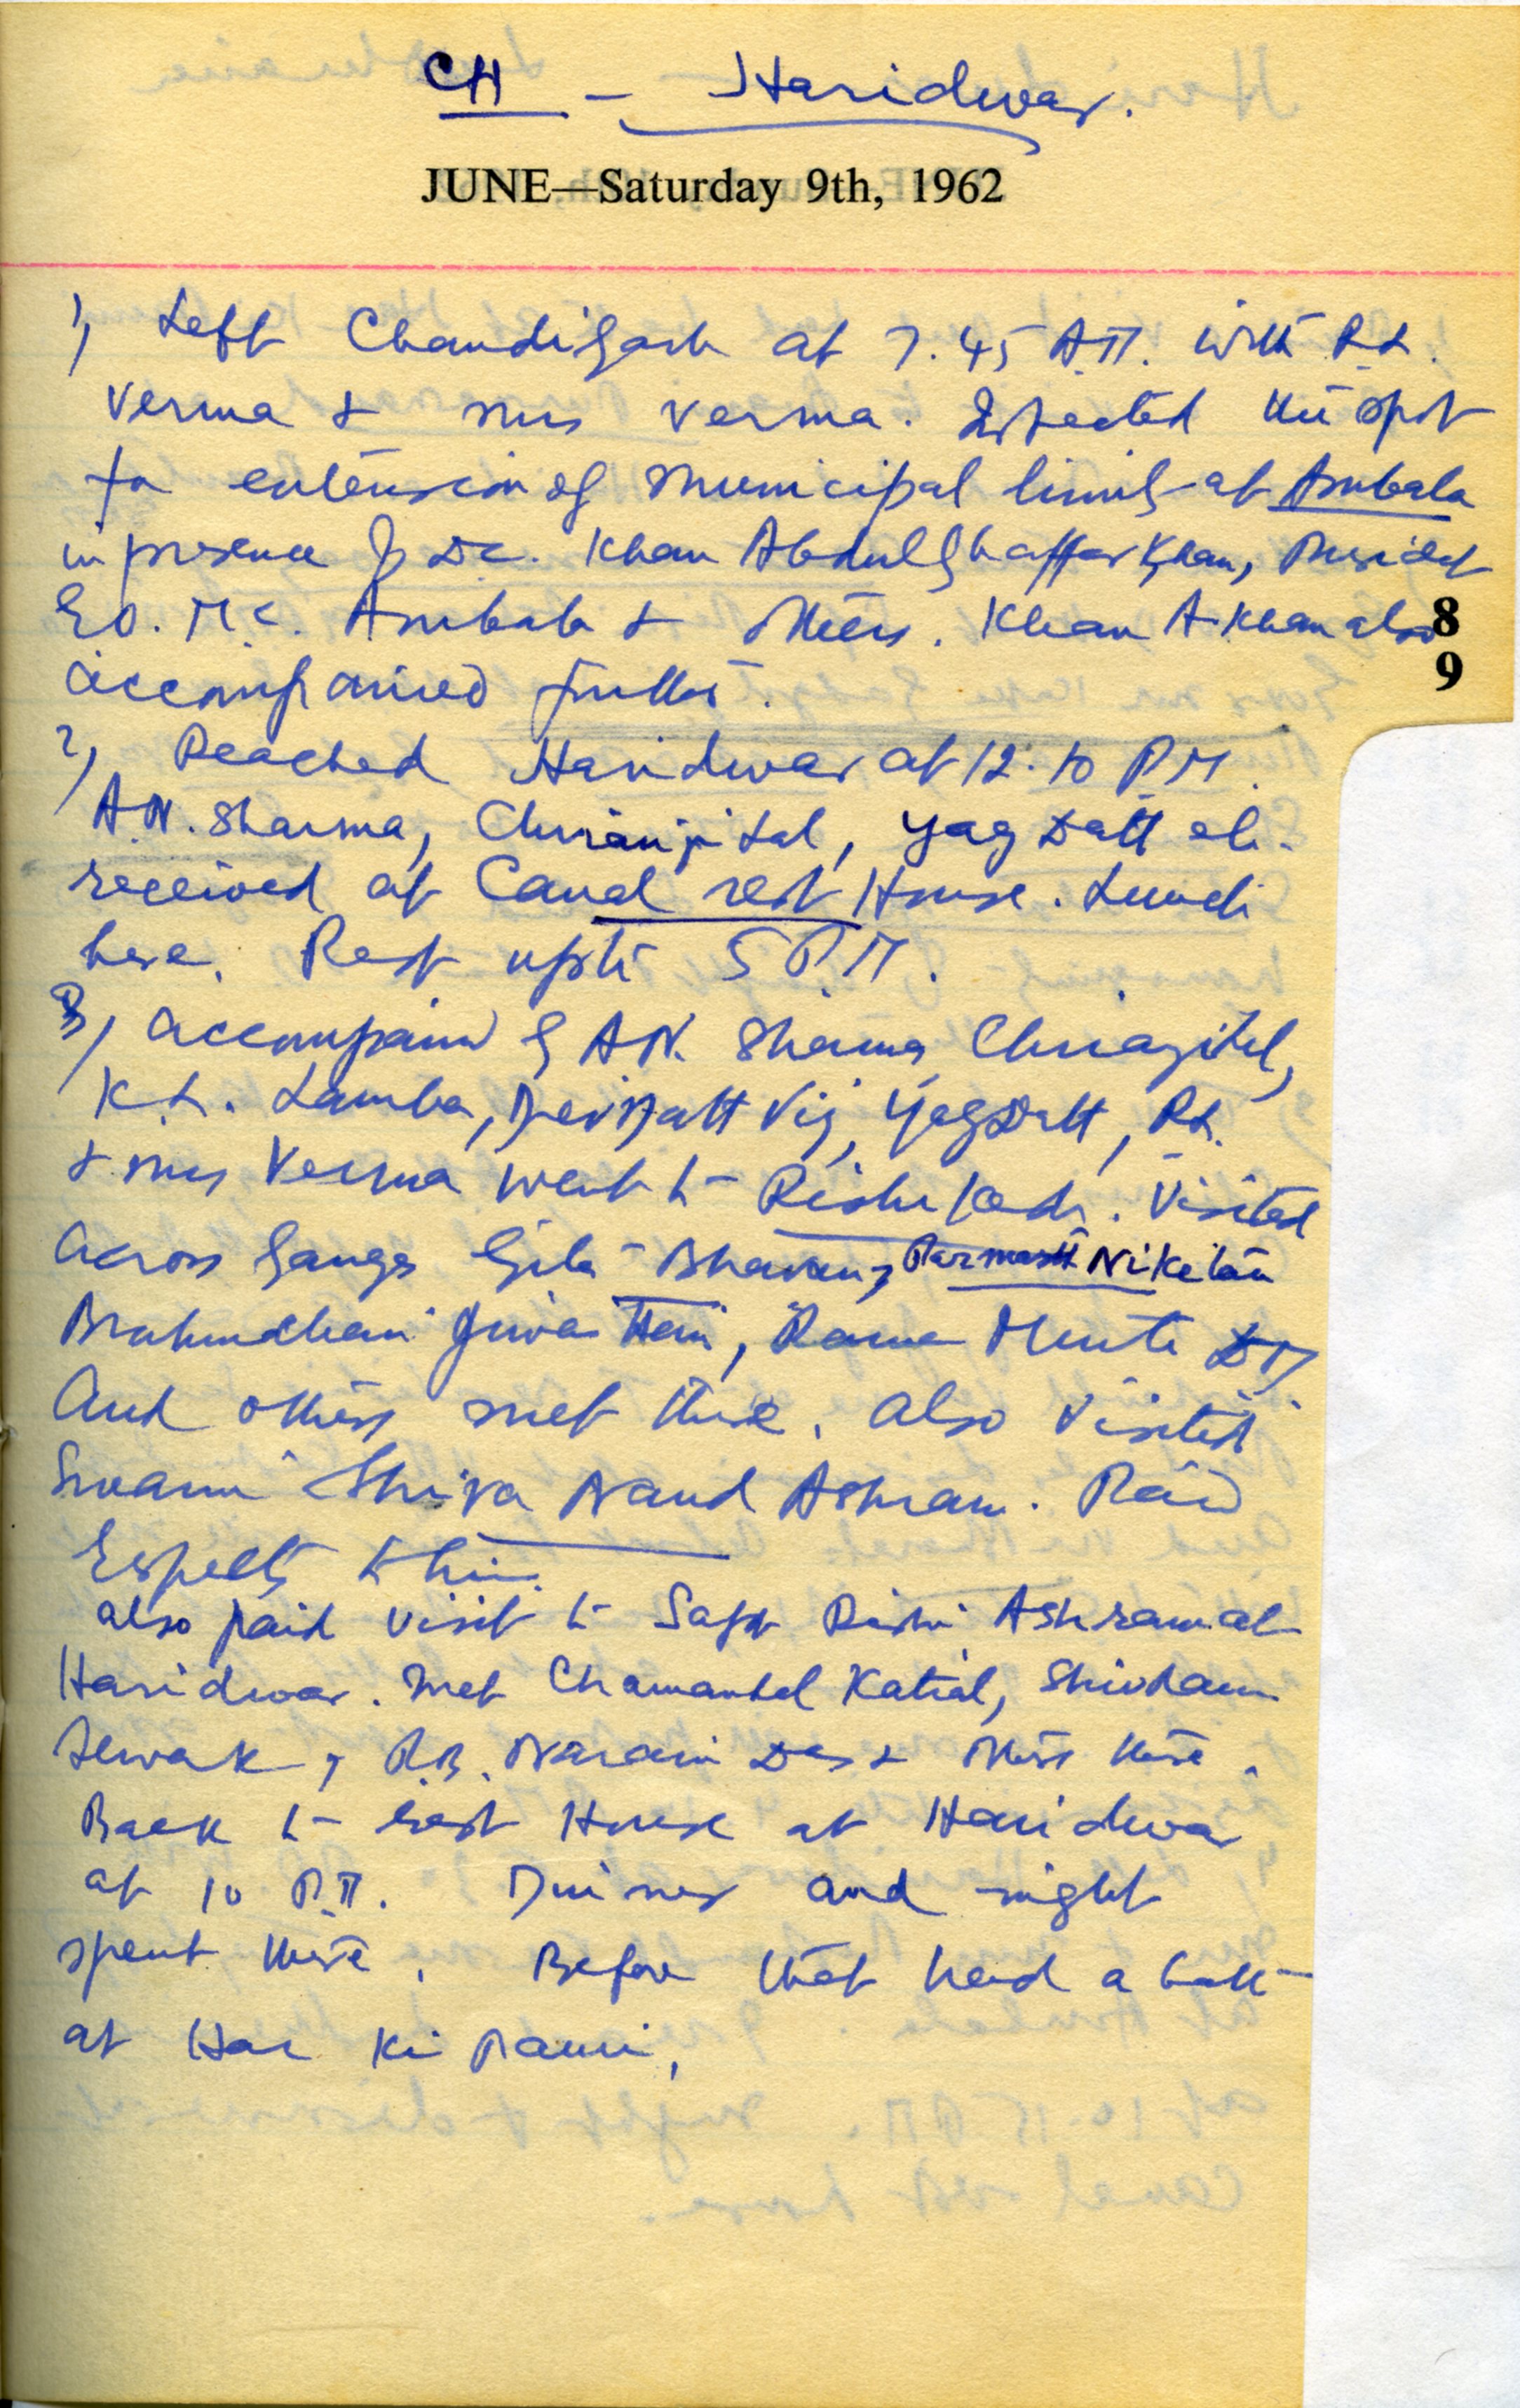 CH - Haridwar.
JUNE—Saturday 9th, 1962
1) Left Chandigarh at 7.45 A.M. with R.L.
Verma & Mrs Verma. Inspected the spot
for extension of Municipal limits at Ambala
in presence of D.C. Khan Abdul Ghaffar Khan, President
E.O. M.C. Ambala & others. Khan A. Khan also
8
9
accompanied further.
2) Reached Haridwar at 12.10 P.M.
A.N. Sharma, Chiranji Lal, Yag Datt etc.
received at Canal rest House. Lunch
here. Rest upto 5 P.M.
3) accompanied by A.N. Sharma, Chiranji Lal,
K.L. Lamba, Dev Datt Vij, Yag Datt, R.L.
& Mrs Verma went to Rishikesh. Visited
across Ganges Gita Bhavan, Niketan
Brahmchari and others met there. also visited
Swami Shiva Nand Ashram. Paid
respects to him.
also paid visit to Sapt Rishi Ashram at
Haridwar. Met Chamanlal Katial,
Sewak, R.B. Narain Das & others there.
Back to rest House at Haridwar
at 10 P.M. Dinner and night
spent there. Before that had a bath
at Har Ki Pauri,